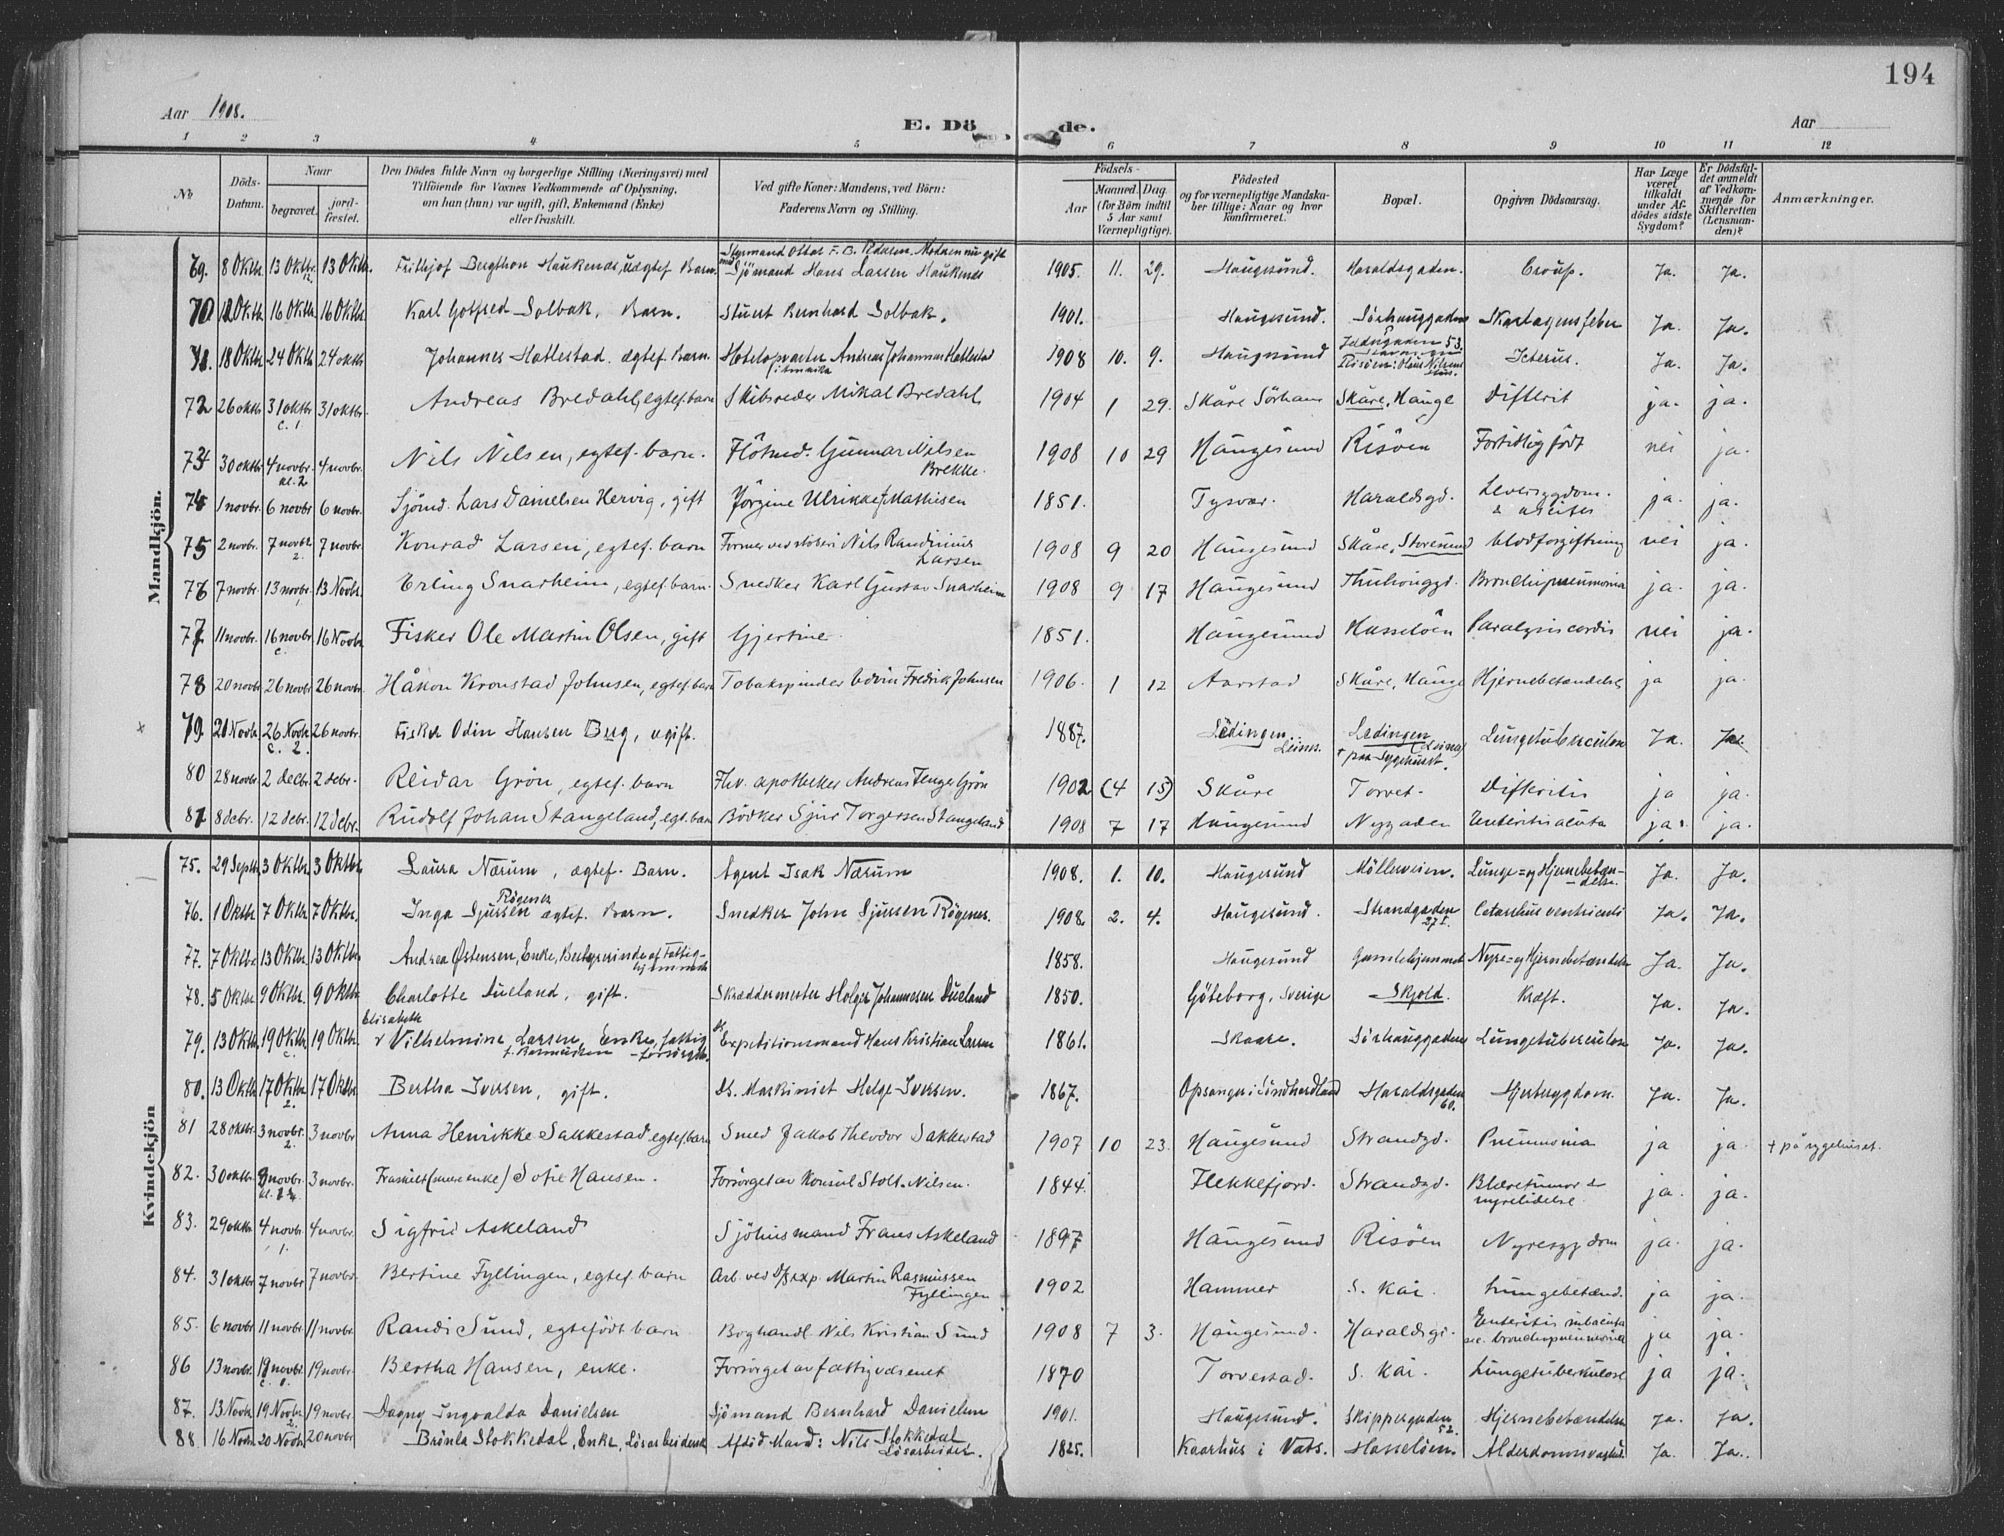 194
Aar 1908.
E. Dö de.
Aar
1 2 3 4 5 6 7 8 9 10 11 12
No
Döds-Datum.
Naar
begravet.
jord-fæstet.
Den Dödes fulde Navn og borgerlige Stilling (Næringsvei) med
Tilföiende for Voxnes Vedkommende af Oplysning,
om han (hun) var ugift, gift, Enkemand (Enke)
eller fraskilt.
Ved gifte Koner: Mandens, ved Börn:
Faderens Navn og Stilling.
Födsels-
Aar
Maaned. Dag.
(for Börn indtil
5 Aar samt
Værnepligtige).
Födested
og for værnepligtige Mandska-
ber tillige: Naar og hvor
konfirmeret.
Bopæl.
Opgiven Dödsaarsag.
Har Læge
været
tilkaldt
under Af-
dödes sidste
Sygdom?
Er Dödsfal-
det anmeldt
af Vedkom-
mende for
Skifteretten
(Lensman-
den)?
Anmærkninger.
Mandkjön.
Styrmand Ottar F. B. Pedersen. Moderen nu gift
69. 8 Oktbr. 13 Oktbr. 13 Oktbr. Frithjof Bergthon Haukenes, uægtef. Barn. med Sjömand Hans Larsen Haukenes 1905. 11. 29. Haugesund. Haraldsgaden. Croup. Ja. Ja.
70 12 Oktbr 16 Oktbr 16 Oktbr. Karl Gotfred Solbak, Barn. Stuert Bernhard Solbak. 1901. Haugesund. Sörhauggaden Skarlagensfeber Ja. Ja.
71. 18 Oktbr 24 Oktbr 24 oktbr. Johannes Hatlestad. ægtef. Barn. Hotelopvarter Andreas Johannes Hatlestad i Amerika 1908 10. 9. Haugesund Risöen: Hans Nilsens Hus. Icterus. Ja. Ja.
72 26 oktbr 31 oktbr 31 oktbr. Andreas Bredahl, egtef. barn Skibsreder Mikal Bredahl 1904 1 29. Skåre Sörhaug Skåre, Hauge Difterit ja. ja.
73 30 oktbr. 4 novbr. kl. 2 4 novbr. Nils Nilsen, egtef. barn. Flötmd. Gunnar Nilsen Brekke. 1908 10 29 Haugesund Risöen Fortidlig födt nei ja.
74 1 novbr. 6 novbr 6 novbr. Sjömd. Lars Danielsen Hervig, gift Jörgine Ulrikke f. Mathisen 1851. Tysvær. Haraldsgd. Leversygdom. & ascites ja. ja.
75 2 novbr. 7 novbr 2. 7 novbr. Konrad Larsen, egtef. barn Former ved stöberi Nils Randinius Larsen 1908 9 20 Haugesund Skåre, Storesund blodforgiftning nei ja.
76 7 novbr. 13 novbr. 13 Novbr. Erling Snarheim, egtef. barn. Snedker Karl Gustav Snarheim 1908 9 17 Haugesund Thuhouggd. Bronchipneumonia ja. ja.
77 11 novbr. 16 novbr 16 Novbr. Fisker Ole Martin Olsen, gift Gjertine. 1851. Haugesund Hasselöen Paralysis cordis nei ja.
78 20 novbr 26 novbr 26 novbr. Håkon Kronstad Johnsen, egtef. barn Tobakspinder Edvin Fredrik Johnsen 1906. 1 12 Aarstad Skåre, Hauge Hjernebetændelse ja ja.
79. 21 Novbr. 26 Novbr. c. 2. 26 novbr. Fisker Odin Hansen Berg, ugift. 1887. Lödingen Lödingen † paa Sygehuset. Lungetuberculose Ja. Ja.
80 28 novbr. 2 decbr. 2 debr. Reidar Grön, egtef. barn Fhv. apotheker Andreas Fenger Grön 1902 (4 15) Skåre Torvet. Difteritis ja ja.
81 8 debr. 12 debr. 12 debr. Rudolf Johan Stangeland, egt. barn Bödker Sjur Torgersen Stangeland 1908 7 17 Haugesund Nygaden Enteritis acuta ja. ja.
Kvindekjön
75. 29 Septbr. 3 Oktbr. 3 Oktbr. Laura Nærum, ægtef. Barn. Agent Isak Nærum 1908. 1. 10. Haugesund Mölleveien. Lunge= og Hjernebetæn-delse. Ja. Ja.
76. 1 Oktbr. 7 Oktbr. 7 Oktbr. Inga Sjursen Rögenes ægtef. Barn. Snedker John Sjursen Rögenes. 1908. 2. 4. Haugesund. Strandgaden 275. Catarrhus ventriculi Ja. Ja.
77. 7 Oktbr. 13 Oktbr. 13 Oktbr. Andrea Østensen, Enke, Bestyrerinde af Fattig-hjemmet 1858. Haugesund Gamlehjemmet Nyre= og Hjernebetændelse Ja. Ja.
78. 5 Oktbr. 9 Oktbr. 9 Oktbr. Charlotte Dueland, gift. Skræddermester Holger Johannesen Dueland 1850. Göteborg, Sverige Skjold. Kræft. Ja. Ja.
79. 13 Oktbr. 19 Oktbr. c. 19 Oktbr. Elisabeth Vilhelmine Larsen, f. Rasmussen Enke, fattig-forsörget. Expeditionsmand Hans Kristian Larsen 1861. Skaare. Sörhauggaden Lungetuberculose Ja. Ja.
80. 13 Oktbr. 17 Oktbr. 2. 17 Oktbr. Bertha Iversen, gift. Ds. Maskinist Helge Iversen. 1867. Opsanger i Söndhordland Haraldsgaden 60. Hjertesygdom. Ja. Ja.
81 28 oktbr. 3 novbr. 2. 3 novbr Anna Henrikke Sakkestad, egtef. barn Smed Jakob Theodor Sakkestad 1907 10 23. Haugesund Strandgd. Pneumonia ja ja. † på sygehuset.
82. 30 oktbr 3 novbr. 3 novbr. Fraskilt (enke) Sofie Hansen. Forsörget av Konsul Stolt-Nilsen. 1844. Flekkefjord. Strandgd. Blæretumor & nyrelidelse. ja. ja.
83. 29 oktbr 4 novbr. 1. 4 novbr. Sigfrid Askeland Sjöhusmand Frans Askeland 1897 Haugesund Risöen Nyresygdom ja. ja.
84. 31 oktbr 7 novbr. 7 novbr. Bertine Fyllingen, egtef. barn Arb. ved D/S exp. Martin Rasmussen Fyllingen 1902 Hammer S. Kår. Lungebetænd. ja ja.
85. 6 novbr. 11 novbr. 11 novbr. Randi Sund, egtefödt barn Boghandl. Nils Kristian Sund 1908 7 3. Haugesund. Haraldsgd. Enteritis subacuta bronchopneumonia ja ja.
86 13 novbr. 19 novbr. 19 novbr. Bertha Hansen, enke. Forsörget av fattigvæsenet 1870 Torvestad. S. Kår. Lungetuberkulose ja ja.
87. 13 Novbr. 19 Novbr. 2. 19 novbr. Dagny Ingvalda Danielsen Sjömand Bernhard Danielsen 1901. Haugesund. Skippergaden 52. Hjernebetændelse Ja. Ja.
88. 16 Novbr. 20 Novbr. 20 novbr Brönla Stokkedal, Enke, Lösarbeiderske Afdöd Mand: Nils Stokkedal Lösarbeider. 1825. Kaarhus i Vats. Hasselöen. Alderdomssvaghed. Ja. Ja.